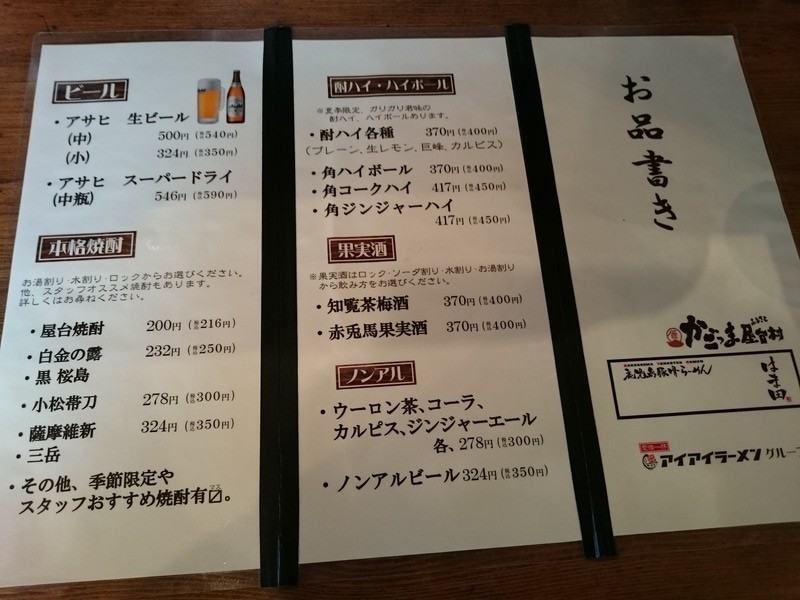 ビール
・アサヒ 生ビール
(中) 500円(税込540円)
(小) 324円(税込350円)
・アサヒ スーパードライ
(中瓶) 546円(税込590円)
本格焼酎
お湯割り・水割り・ロックからお選びください。
他、スタッフオススメ焼酎もあります。
詳しくはお尋ねください。
・屋台焼酎 200円(税込216円)
・白金の露 232円(税込250円)
・黒 桜島
・小松帯刀 278円(税込300円)
・薩摩維新 324円(税込350円)
・三岳
・その他、季節限定や
スタッフおすすめ焼酎有〼。
酎ハイ・ハイボール
※夏季限定、ガリガリ君味の
酎ハイ、ハイボールあります。
・酎ハイ各種 370円(税込400円)
(プレーン、生レモン、巨峰、カルピス)
・角ハイボール 370円(税込400円)
・角コークハイ 417円(税込450円)
・角ジンジャーハイ
417円(税込450円)
果実酒
※果実酒はロック・ソーダ割り・水割り・お湯割り
から飲み方をお選びください。
・知覧茶梅酒 370円(税込400円)
・赤兎馬果実酒 370円(税込400円)
ノンアル
・ウーロン茶、コーラ、
カルピス、ジンジャーエール
各、278円(税込300円)
・ノンアルビール 324円(税込350円)
お品書き
かごっま屋台村
鹿児島豚味らーめん
はま田
アイアイラーメングループ